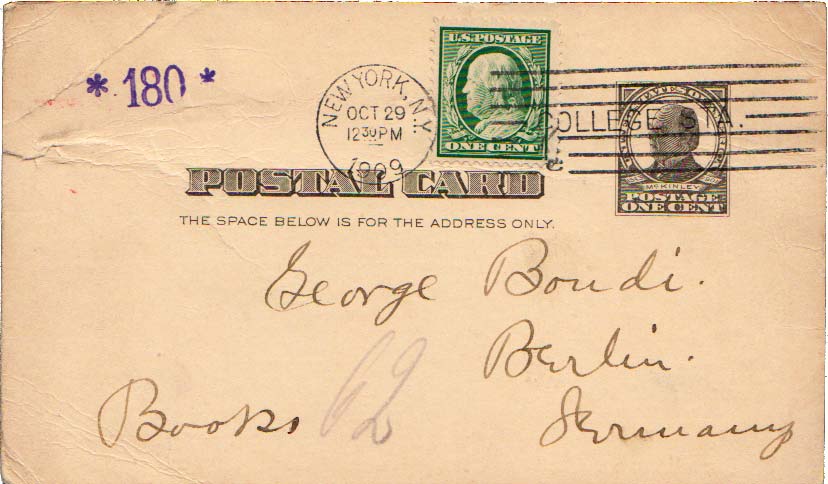 * 180 *
U.S. POSTAGE
ONE CENT
NEW YORK, N.Y.
OCT 29
12 30 PM
1909
COLLEGE STA.
UNITED STATES OF AMERICA
McKINLEY
POSTAGE
ONE CENT
POSTAL CARD
THE SPACE BELOW IS FOR THE ADDRESS ONLY.
George Bondi.
Berlin.
Books 62
Germany